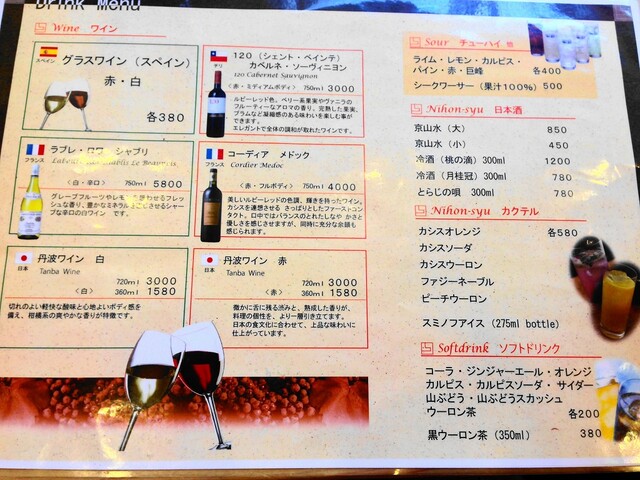 Drink Menu
Wine ワイン
スペイン
グラスワイン (スペイン)
赤・白
各380
チリ
120 (シェント・ベインテ)
カベルネ・ソーヴィニヨン
120 Cabernet Sauvignon
<赤・ミディアムボディ> 750ml 3000
ルビーレッド色。ベリー系果実やヴァニラの
フルーティーなアロマの香り。完熟した果実、
プラムなど凝縮感のある味わいを楽しむ事が
できます。
エレガントで全体の調和が取れたワインです。
フランス
ラブレ・ロワ シャブリ
<白・辛口> 750ml 5800
グレープフルーツやレモンを思わせるフレッ
シュな香り、豊かなミネラルを感じさせるシャー
プな辛口の白ワイン です。
フランス
コーディア メドック
Cordier Medoc
<赤・フルボディ> 750ml 4000
美しいルビーレッドの色調、輝きを持ったワイン。
カシスを連想させる さっぱりとしたファーストコン
タクト。口中ではバランスのとれたしなや かさと
優しさを感じさせますが、同時に充分な余韻も
感じられます。
日本
丹波ワイン 白
Tanba Wine
720ml 3000
<白> 360ml 1580
切れのよい軽快な酸味と心地よいボディ感を
備え、柑橘系の爽やかな香りが特徴です。
日本
丹波ワイン 赤
Tanba Wine
720ml 3000
<赤> 360ml 1580
微かに舌に残る渋みと、熟成した香りが、
料理の個性を、より一層引き立てます。
日本の食文化に合わせて、上品な味わいに
仕上がっています。
Sour チューハイ
ライム・レモン・カルピス・
パイン・赤・巨峰 各400
シークワーサー (果汁100%) 500
Nihon-syu 日本酒
京山水 (大) 850
京山水 (小) 450
冷酒 (桃の滴) 300ml 1200
冷酒 (月桂冠) 300ml 780
とらじの唄 300ml 780
Nihon-syu カクテル
カシスオレンジ 各580
カシスソーダ
カシスウーロン
ファジーネーブル
ピーチウーロン
スミノフアイス (275ml bottle)
Softdrink ソフトドリンク
コーラ・ジンジャーエール・オレンジ
カルピス・カルピスソーダ・サイダー
山ぶどう・山ぶどうスカッシュ
ウーロン茶 各200
黒ウーロン茶 (350ml) 380